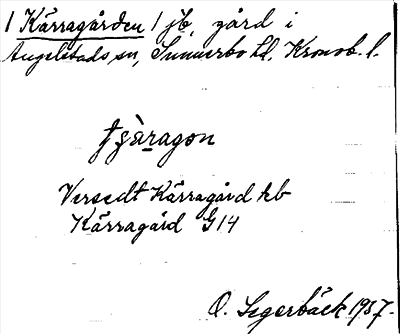 1 Kärragården 1 jb, gård i
Angelstads sn, Sunnerbo hd, Kronob. l.
tʃä̀ragon
Versedt Kärragård kb
Kärragård G14
O. Segerbäck 1937.